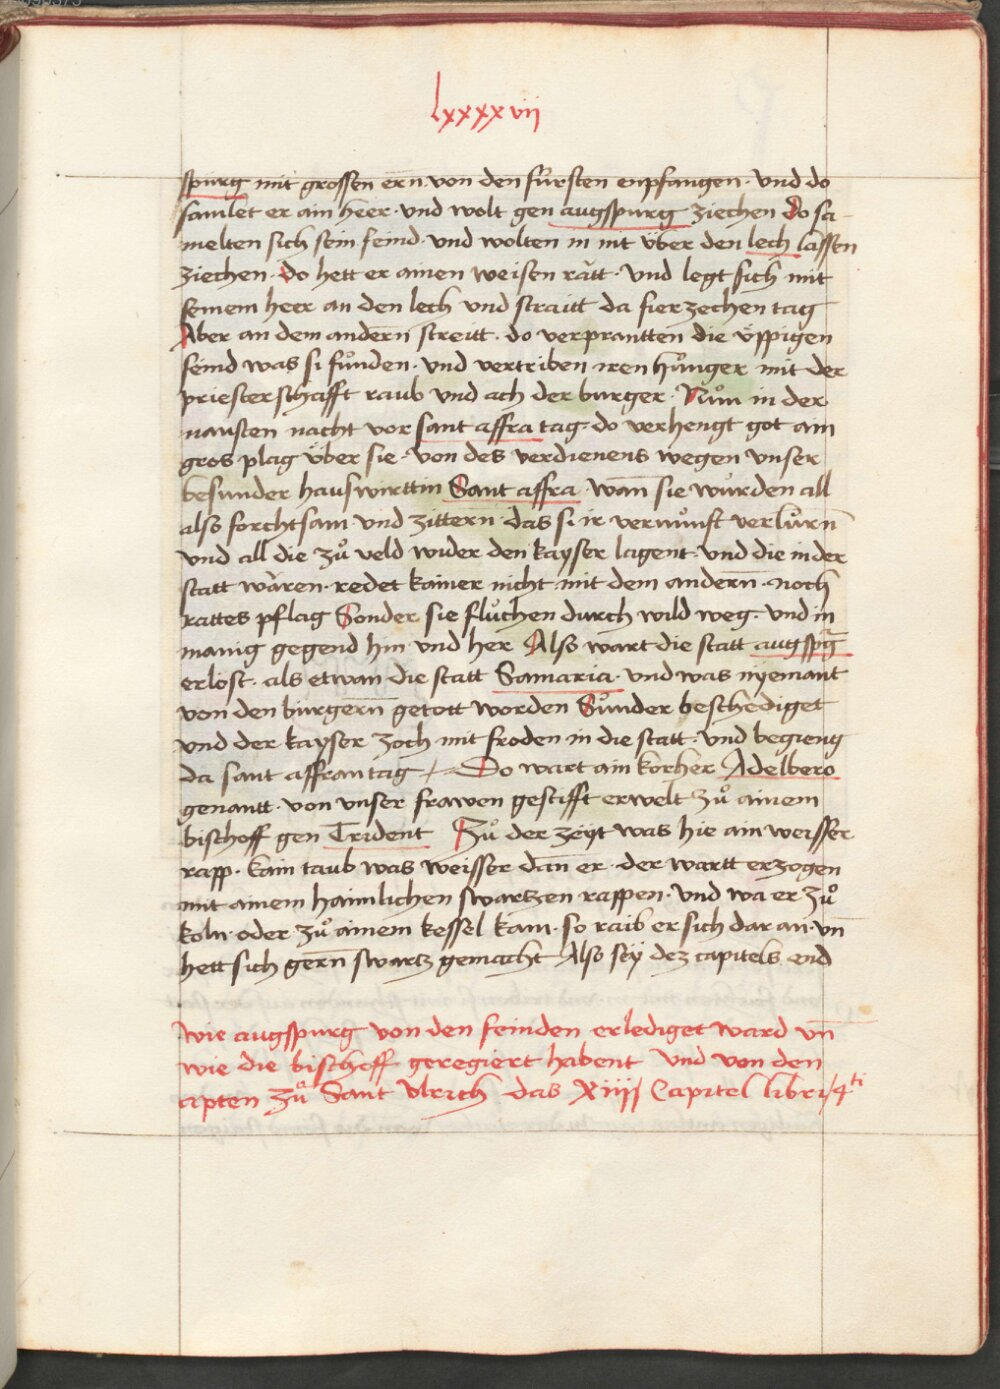 lxxxxvii
spurg mit grossen ern̄ von den fůrsten enpfangen · vnd do
samlet er ain heer · vnd wolt gen augspurg ziechen Do sa
melten sich sein feind · vnd wolten in nit v̈ber den lech lassen
ziechen · Do hett er ainen weisen rätt · vnd legt sich mit
seinem heer an den lech vnd straitt da fierzechen tag
Aber an dem andern streitt · do verprantten die v̈ppigen
feind was si fůnden · vnd vertriben iren hůnger mit der
priesterschafft raub vnd ach der burger · Nům in der
nausten nacht vor sant affra tag · do verhengt got ain
gros plag v̈ber sie · von des verdienens wegen vnser
besunder hauswirttin Sant affra · wan̄ sie wůrden all
also forchtsam vnd zittern̄ · das si ir vernůnft verlůrn̄
vnd all die zů veld wider den kayser lagent · vnd die in der
statt wären · redet kainer nicht mit dem andern̄ · noch
rattes pflag Sonder sie flůchen durch wild weg · vnd in
manig gegend hin vnd her Also wart die statt augspḡ
erlöst · als etwan die statt Samaria · vnd was nyemant
von den burgern̄ getott worden Sůnder beschediget
vnd der kayser zoch mit froden in die statt · vnd begieng
da sant affran tag Do wart ain korher Adelbero
genantt · von vnser frawen gestifft erwelt zů ainem
bischoff gen Trident Zů der zeyt was hie ain weisser
rapp · kain taub was weisser dan̄ er · der wartt erzogen
mit ainem haimlichen swartzen rappen · vnd wa er zů
koln · oder zů ainem kessel kam · so raib er sich dar an · vn̄
hett sich gern̄ swartz gemacht Also sey dez capitels end
wie augspurg von den feinden erlediget ward vn̄
wie die bischoff geregiert habent vnd von den
apten zů Sant vlrich das xiiij Capitel libri 4ti